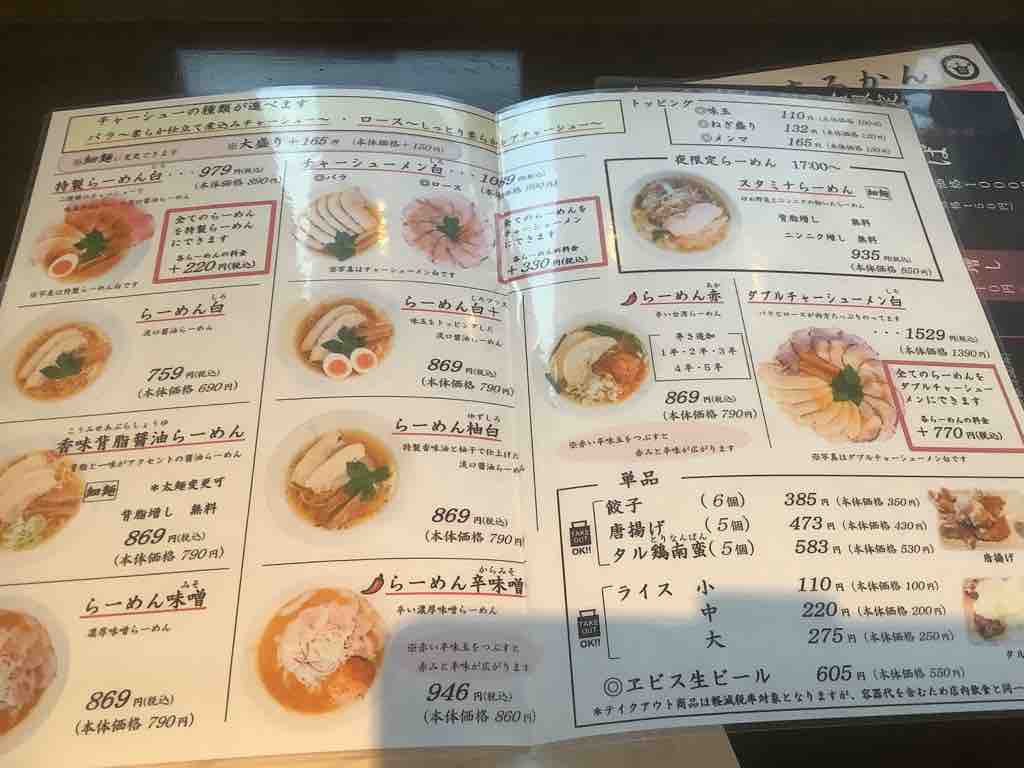 チャーシューの種類が選べます
バラ〜柔らか仕立て煮込みチャーシュー〜 ・ ロース〜しっとり柔らかレアチャーシュー〜
※細麺に変更できます
※大盛り+165円 (本体価格+150円)
特製らーめん白・・・979円(税込)
(本体価格 890円)
全てのらーめん
を特製らーめん
にできます
各らーめんの料金
+220円(税込)
※写真は特製らーめん白です
チャーシューメン白・・・1089円(税込)
しろ
◎バラ
◎ロース
(本体価格 990円)
全てのらーめんを
チャーシューメン
にできます
各らーめんの料金
+330円(税込)
※写真はチャーシューメン白です
しろ
らーめん白
淡口醤油らーめん
759円(税込)
(本体価格 690円)
しろプラス
らーめん白+
味玉をトッピングした
淡口醤油らーめん
869円(税込)
(本体価格 790円)
こうみせあぶらしょうゆ
香味背脂醤油らーめん
背脂と一味がアクセントの醤油らーめん
細麺
*太麺変更可
背脂増し 無料
869円(税込)
(本体価格 790円)
ゆずしろ
らーめん柚白
特製香味油と柚子で仕上げた
淡口醤油らーめん
869円(税込)
(本体価格 790円)
みそ
らーめん味噌
濃厚味噌らーめん
869円(税込)
(本体価格 790円)
からみそ
らーめん辛味噌
辛い濃厚味噌らーめん
※赤い辛味玉をつぶすと
赤みと辛味が広がります
946円(税込)
(本体価格 860円)
トッピング
◎味玉 110円 (本体価格 100円)
◎ねぎ盛り 132円 (本体価格 120円)
◎メンマ 165円 (本体価格 150円)
夜限定らーめん 17:00〜
スタミナらーめん 細麺
背脂増し 無料
ニンニク増し 無料
935円(税込)
(本体価格 850円)
あか
らーめん赤
辛い台湾らーめん
辛さ追加
1辛・2辛・3辛
4辛・5辛
869円(税込)
(本体価格 790円)
※赤い辛味玉をつぶすと
赤みと辛味が広がります
しろ
ダブルチャーシューメン白
バラとロースが両方たっぷりのってます
・・・1529円(税込)
(本体価格 1390円)
全てのらーめんを
ダブルチャーシュー
メンにできます
各らーめんの料金
+770円(税込)
※写真はダブルチャーシューメン白です
単品
TAKE OUT OK!!
餃子 (6個) 385円 (本体価格 350円)
唐揚げ (5個) 473円 (本体価格 430円)
とりなんばん
タル鶏南蛮(5個) 583円 (本体価格 530円)
唐揚げ
TAKE OUT OK!!
ライス 小 110円 (本体価格 100円)
中 220円 (本体価格 200円)
大 275円 (本体価格 250円)
タル
◎ヱビス生ビール 605円 (本体価格 550円)
*テイクアウト商品は軽減税率対象となりますが、容器代を含むため店内飲食と同一